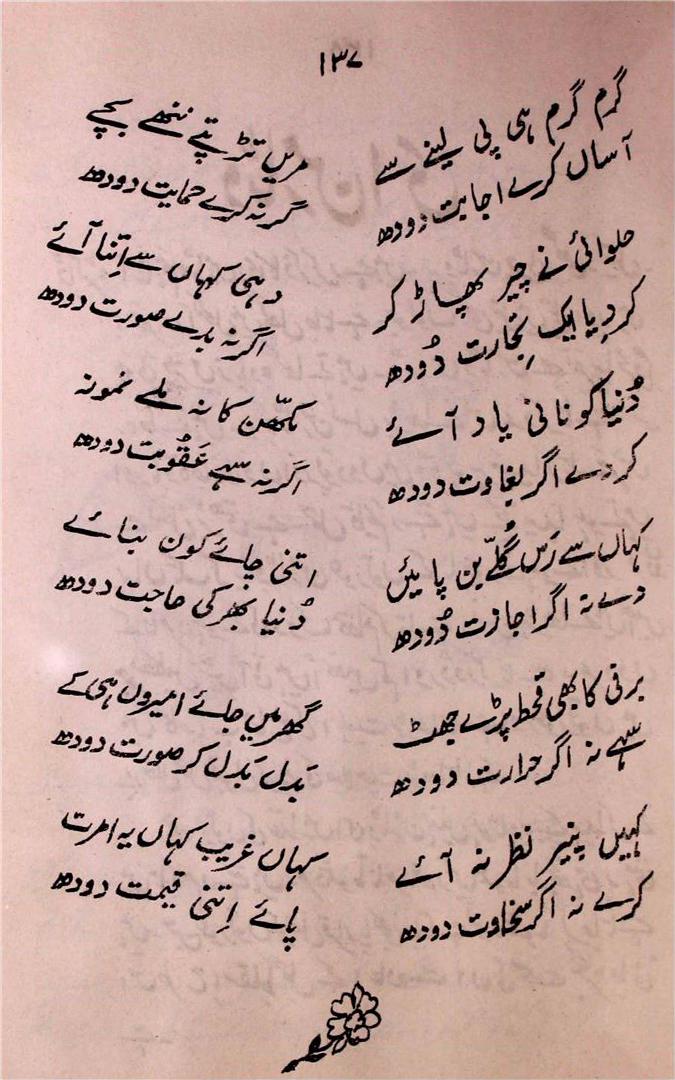 ۱۳۷
گرم گرم ہی پی لینے سے
آساں کرے اجابت دودھ
حلوائی نے چیر پھاڑ کر
کر دِیا ایک تجارت دُودھ
دُنیا کو نانی یاد آئے
کر دے اگر بغاوت دودھ
کہاں سے رَس گُلّے بن پائیں
دے نہ اگر اجازت دُودھ
برفی کا بھی قحط پڑے جھٹ
سہے نہ اگر حرارت دودھ
کہیں پنیر نظر نہ آئے
کرے نہ اگر سخاوت دودھ
مریں تڑپتے ننھے بچے
گر نہ کرے حمایت دودھ
دہی کہاں سے اِتنا آئے
اگر نہ بدلے صورت دودھ
مکھّن کا نہ ملے نمونہ
اگر نہ سہے عَقُوبت دودھ
اتنی چائے کون بنائے
دُنیا بھر کی حاجت دودھ
گھر میں جائے امیروں ہی کے
بَدل بَدل کر صورت دودھ
کہاں غریب کہاں یہ امرت
پائے اِتنی قیمت دودھ